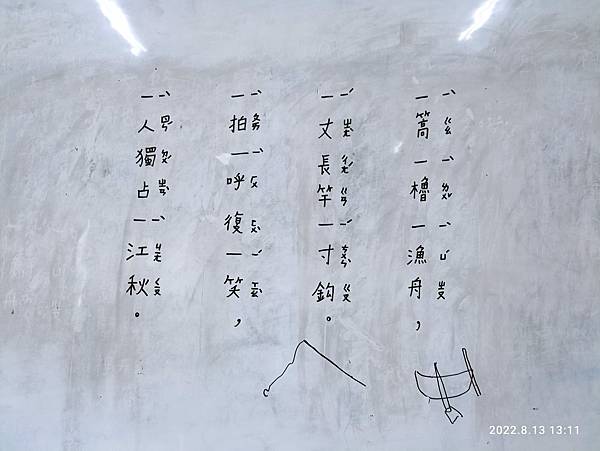 一篙一櫓一漁舟,
一丈長竿一寸鉤。
一拍一呼復一笑,
一人獨占一江秋。
2022.8.13 13:11